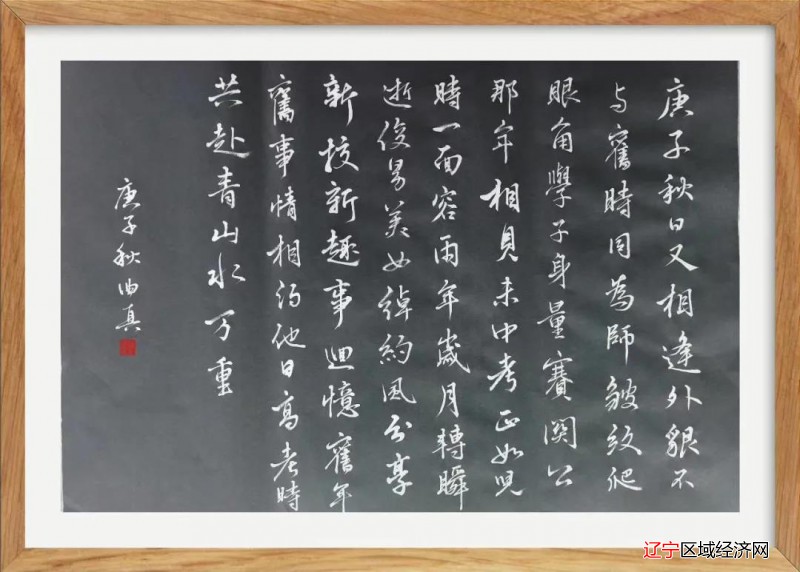 庚子秋日又相逢外貌不
与舊時同為師皺紋爬
眼角學子身量賽関公
那年相見未中考正如児
時一面容兩年歲月轉瞬
逝俊男美女綽約風分享
新校新趣事迴憶舊年
舊事情相約他日高考時
共赴青山水万重
庚子秋由真
辽宁区域经济网